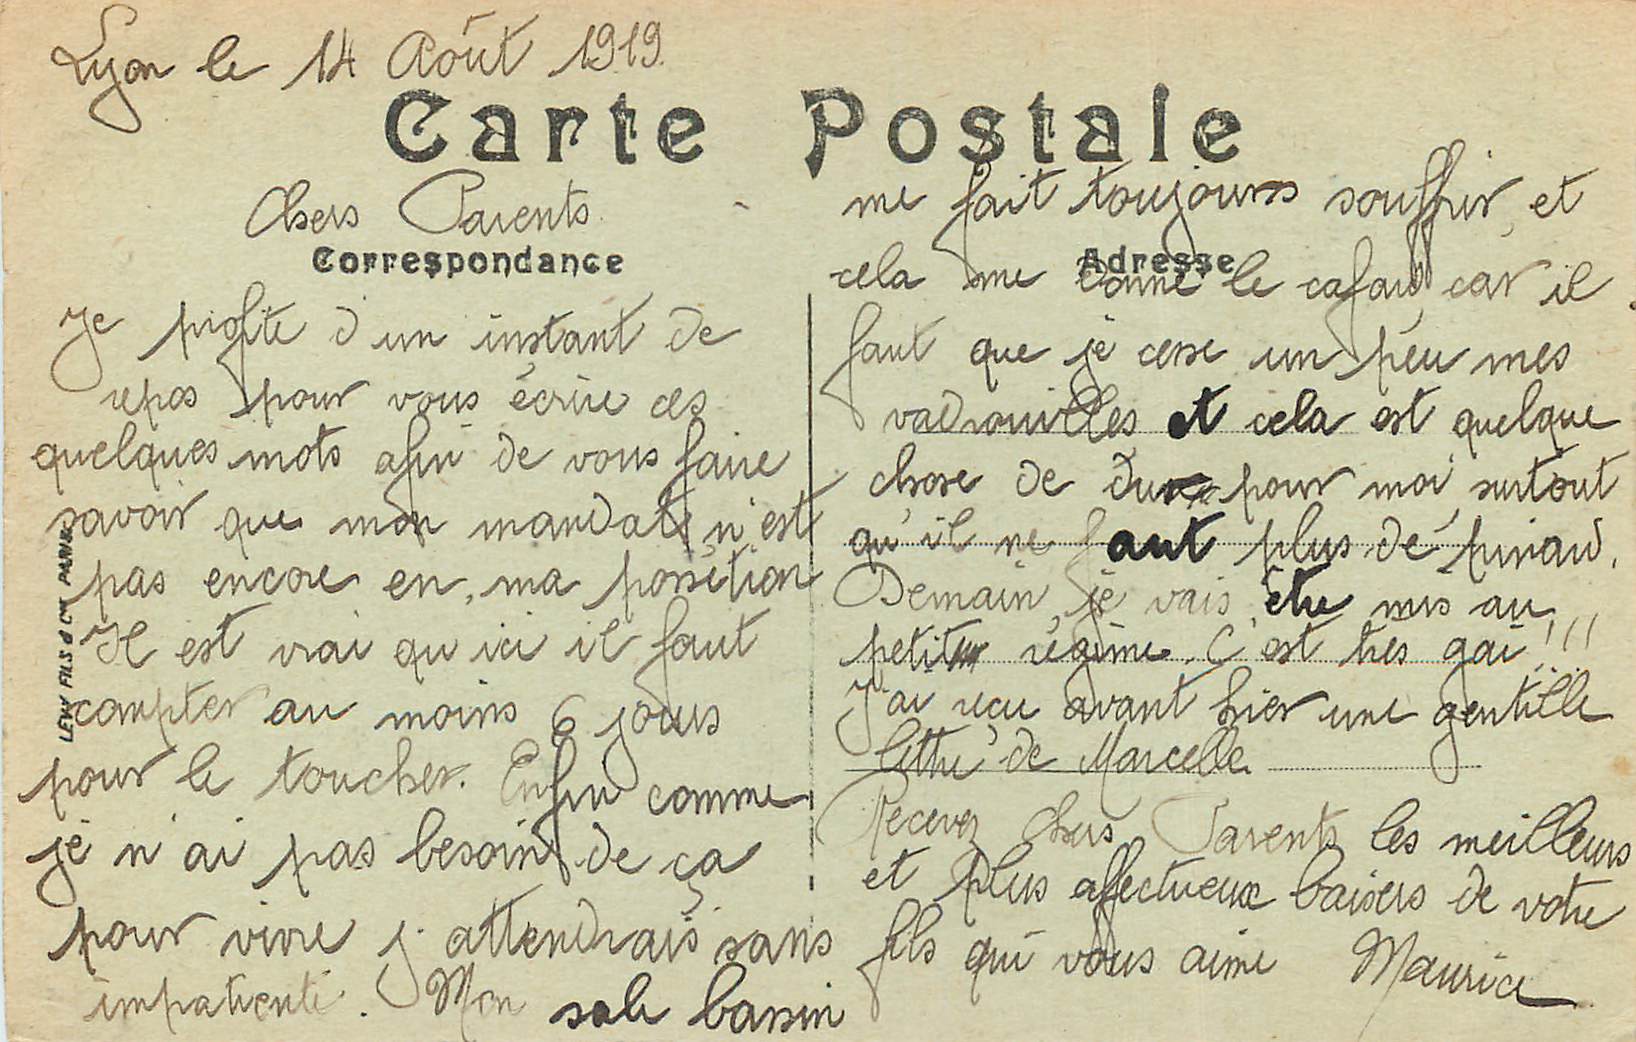 Lyon le 14 Août 1919.
Carte Postale
Chers Parents
Correspondance
Je profite d'un instant de
repos pour vous écrire ces
quelques mots afin de vous faire
savoir que mon mandat n'est
pas encore en ma possétion
Il est vrai qu'ici il faut
compter au moins 6 jours
pour le toucher. Enfin comme
je n'ai pas besoin de ça
pour vivre j'attendrais sans
impatiente. Mon sale bassin
LEVY FILS & Cie PARIS
me fait toujours souffrir et
Adresse
cela me donne le cafard car il
faut que je cesse un peu mes
vadrouilles et cela est quelque
chose de dur pour moi surtout
qu'il ne faut plus de pinard.
Demain je vais être mis au
petit régime. C'est très gai!!!
J'ai reçu avant hier une gentille
lettre de Marcelle.
Recevez chers Parents les meilleurs
et plus affectueux baisers de votre
fils qui vous aime Maurice